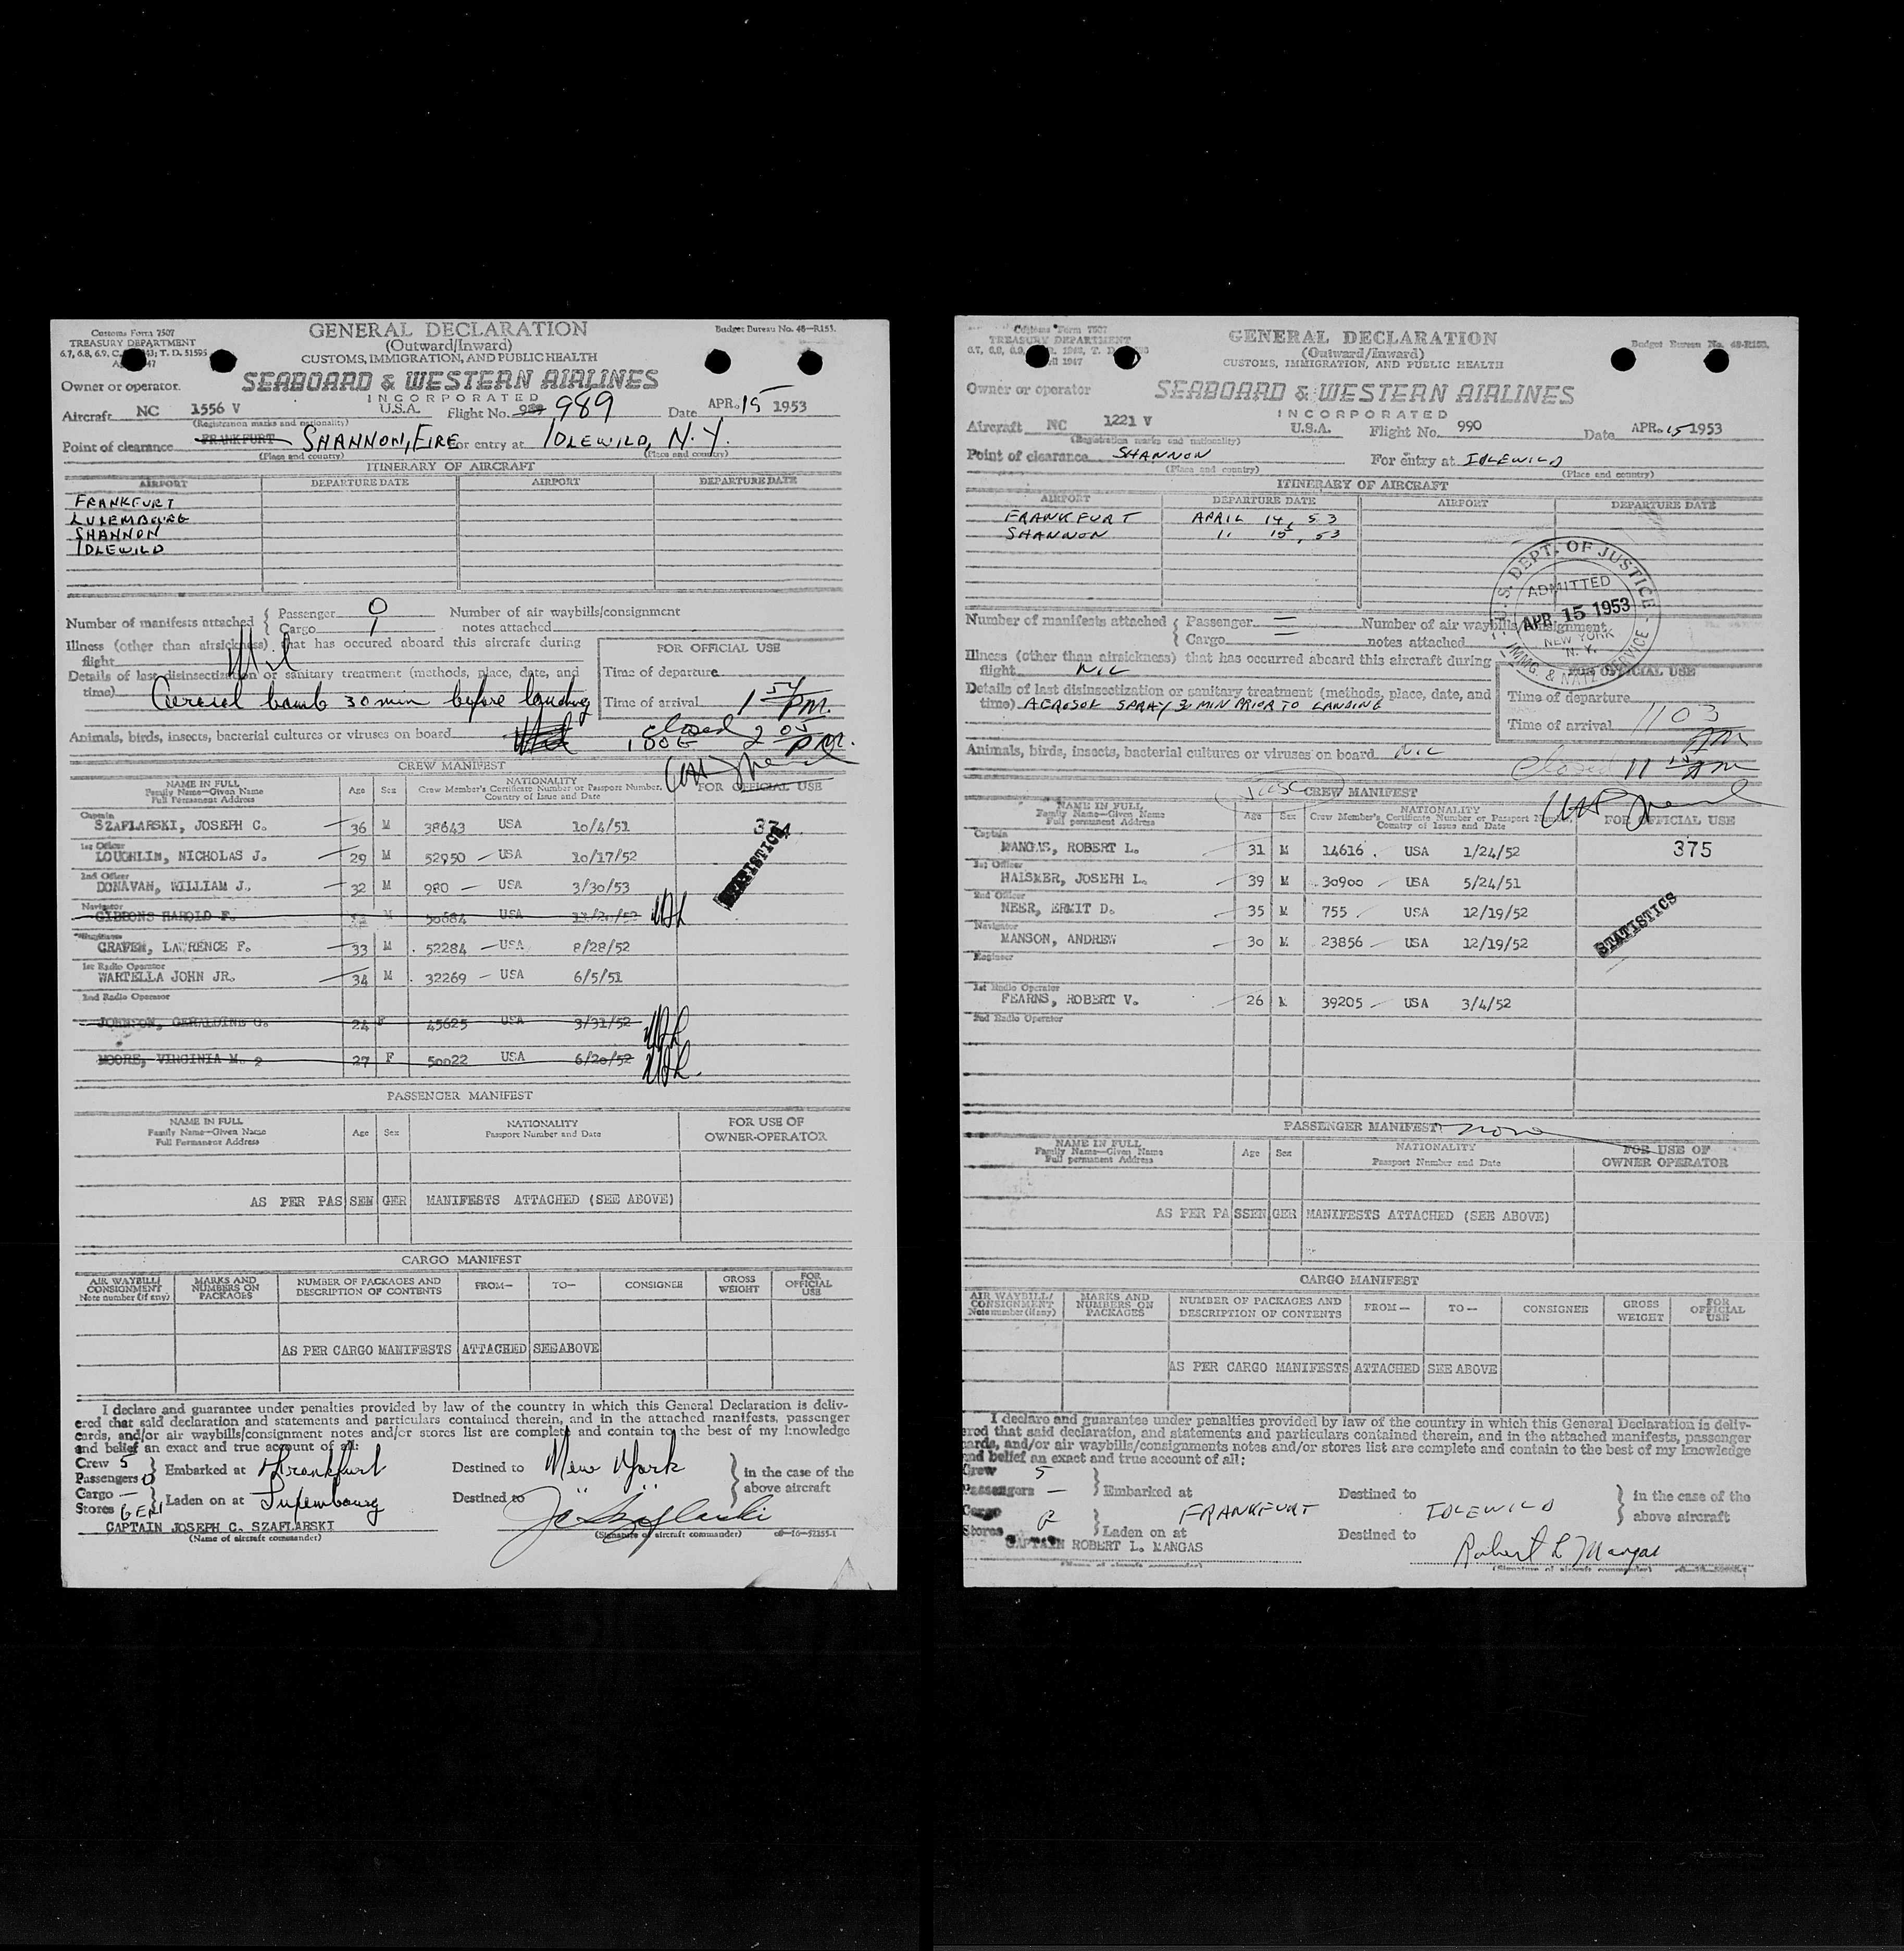 Customs Form 7507
TREASURY DEPARTMENT
GENERAL DECLARATION
(Outward/Inward)
CUSTOMS, IMMIGRATION, AND PUBLIC HEALTH
Budget Bureau No. 48—R153.
Owner or operator.
SEABOARD & WESTERN AIRLINES
INCORPORATED
Aircraft NC 1556 V U.S.A. Flight No. 989 Date APR. 15 1953
(Registration marks and nationality)
Point of clearance FRANKFURT SHANNON, EIRE For entry at IDLEWILD, N.Y.
(Place and country) (Place and country)
ITINERARY OF AIRCRAFT
AIRPORT DEPARTURE DATE AIRPORT DEPARTURE DATE
FRANKFURT
LUXEMBOURG
SHANNON
IDLEWILD
Number of manifests attached { Passenger 0 Number of air waybills/consignment
Cargo 1 notes attached
Illness (other than airsickness) that has occured aboard this aircraft during
flight Nil
FOR OFFICIAL USE
Details of last disinsectization or sanitary treatment (methods, place, date, and
time) Aerosol bomb 30 min before landing
Time of departure
Time of arrival 1 54 PM.
closed 2 05 PM.
Animals, birds, insects, bacterial cultures or viruses on board 1 DOG
CREW MANIFEST
NAME IN FULL
Family Name—Given Name
Full Permanent Address
Age Sex
NATIONALITY
Crew Member's Certificate Number or Passport Number,
Country of Issue and Date
FOR OFFICIAL USE
Captain
SZAFLARSKI, JOSEPH C. 36 M 38643 USA 10/4/51 374
1st Officer
LOUGHLIN, NICHOLAS J. 29 M 52950 — USA 10/17/52
STATISTICS
2nd Officer
DONAVAN, WILLIAM J. 32 M 980 — USA 3/30/53
Navigator
GIBBONS HAROLD F. M 50684 USA
GRAVEN, LAWRENCE F. 33 M 52284 — USA 8/28/52
1st Radio Operator
WARTELLA JOHN JR. 34 M 32269 — USA 6/5/51
2nd Radio Operator
JOHNSON, GERALDINE G. 24 F 45625 — USA 3/31/52
MOORE, VIRGINIA M. 2 27 F 50022 USA 6/20/52
PASSENGER MANIFEST
NAME IN FULL
Family Name—Given Name
Full Permanent Address
Age Sex
NATIONALITY
Passport Number and Date
FOR USE OF
OWNER-OPERATOR
AS PER PASSENGER MANIFESTS ATTACHED (SEE ABOVE)
CARGO MANIFEST
AIR WAYBILL/
CONSIGNMENT
Note number (if any)
MARKS AND
NUMBERS ON
PACKAGES
NUMBER OF PACKAGES AND
DESCRIPTION OF CONTENTS
FROM— TO— CONSIGNEE
GROSS
WEIGHT
FOR
OFFICIAL
USE
AS PER CARGO MANIFESTS ATTACHED SEE ABOVE
I declare and guarantee under penalties provided by law of the country in which this General Declaration is deliv-
ered that said declaration and statements and particulars contained therein, and in the attached manifests, passenger
cards, and/or air waybills/consignment notes and/or stores list are complete and contain to the best of my knowledge
and belief an exact and true account of all:
Crew 5
Passengers 0 Embarked at Frankfurt Destined to New York in the case of the
Cargo — above aircraft
Stores GEN Laden on at Luxembourg Destined to
CAPTAIN JOSEPH C. SZAFLARSKI
(Name of aircraft commander) (Signature of aircraft commander)
Customs Form 7507
TREASURY DEPARTMENT
GENERAL DECLARATION
(Outward/Inward)
CUSTOMS, IMMIGRATION, AND PUBLIC HEALTH
Budget Bureau No. 48-R153.
Owner or operator
SEABOARD & WESTERN AIRLINES
INCORPORATED
Aircraft NC 1221 V U.S.A. Flight No. 990 Date APR. 15 1953
(Registration marks and nationality)
Point of clearance SHANNON For entry at IDLEWILD
(Place and country) (Place and country)
ITINERARY OF AIRCRAFT
AIRPORT DEPARTURE DATE AIRPORT DEPARTURE DATE
FRANKFURT APRIL 14, 53
SHANNON 11 15, 53
U.S. DEPT. OF JUSTICE
ADMITTED
APR 15 1953
NEW YORK
N. Y.
IMMG. & NATZ. SERVICE
Number of manifests attached { Passenger — Number of air waybills/consignment
Cargo — notes attached
Illness (other than airsickness) that has occurred aboard this aircraft during
flight NIL
FOR OFFICIAL USE
Details of last disinsectization or sanitary treatment (methods, place, date, and
time) AEROSOL SPRAY 30 MIN PRIOR TO LANDING
Time of departure
Time of arrival 11 03 AM
closed 11 15 AM
Animals, birds, insects, bacterial cultures or viruses on board NIL
CREW MANIFEST
NAME IN FULL
Family Name—Given Name
Full permanent Address
Age Sex
NATIONALITY
Crew Member's Certificate Number or Passport Number
Country of Issue and Date
FOR OFFICIAL USE
Captain
MANGAS, ROBERT L. 31 M 14616 USA 1/24/52 375
1st Officer
HAISMER, JOSEPH L. 39 M 30900 USA 5/24/51
2nd Officer
NEER, ERMIT D. 35 M 755 USA 12/19/52
STATISTICS
Navigator
MANSON, ANDREW 30 M 23856 USA 12/19/52
Engineer
1st Radio Operator
FEARNS, ROBERT V. 26 M 39205 USA 3/4/52
2nd Radio Operator
PASSENGER MANIFEST none
NAME IN FULL
Family Name—Given Name
Full permanent Address
Age Sex
NATIONALITY
Passport Number and Date
FOR USE OF
OWNER OPERATOR
AS PER PASSENGER MANIFESTS ATTACHED (SEE ABOVE)
CARGO MANIFEST
AIR WAYBILL/
CONSIGNMENT
Note number (if any)
MARKS AND
NUMBERS ON
PACKAGES
NUMBER OF PACKAGES AND
DESCRIPTION OF CONTENTS
FROM— TO— CONSIGNEE
GROSS
WEIGHT
FOR
OFFICIAL
USE
AS PER CARGO MANIFESTS ATTACHED SEE ABOVE
I declare and guarantee under penalties provided by law of the country in which this General Declaration is deliv-
ered that said declaration, and statements and particulars contained therein, and in the attached manifests, passenger
cards, and/or air waybills/consignments notes and/or stores list are complete and contain to the best of my knowledge
and belief an exact and true account of all;
Crew 5
Passengers — Embarked at Destined to in the case of the
Cargo FRANKFURT IDLEWILD above aircraft
Stores Laden on at Destined to
CAPTAIN ROBERT L. MANGAS Robert L Mangas
(Name of aircraft commander) (Signature of aircraft commander)